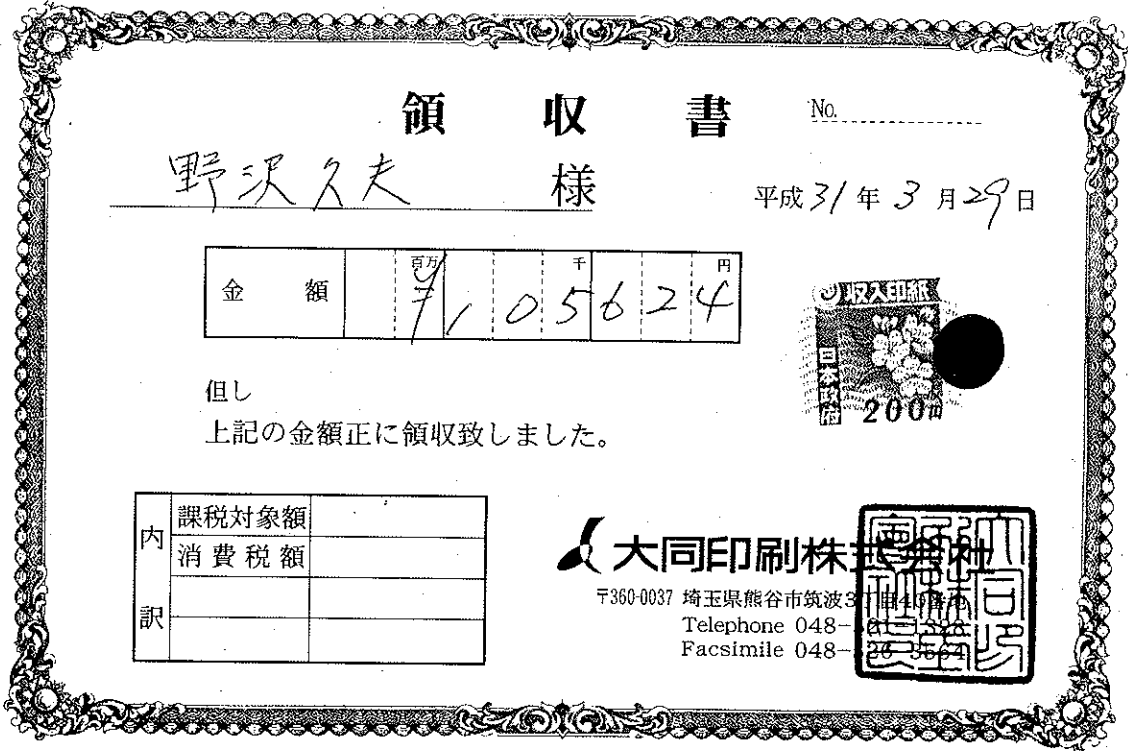 領 収 書 No.
野沢久夫 様
平成31年3月29日
金 額 百万 千 円
¥105624
収入印紙
日本政府
200円
但し
上記の金額正に領収致しました。
内訳
課税対象額
消費税額
大同印刷株式会社
〒360-0037 埼玉県熊谷市筑波3丁目
Telephone 048-
Facsimile 048-